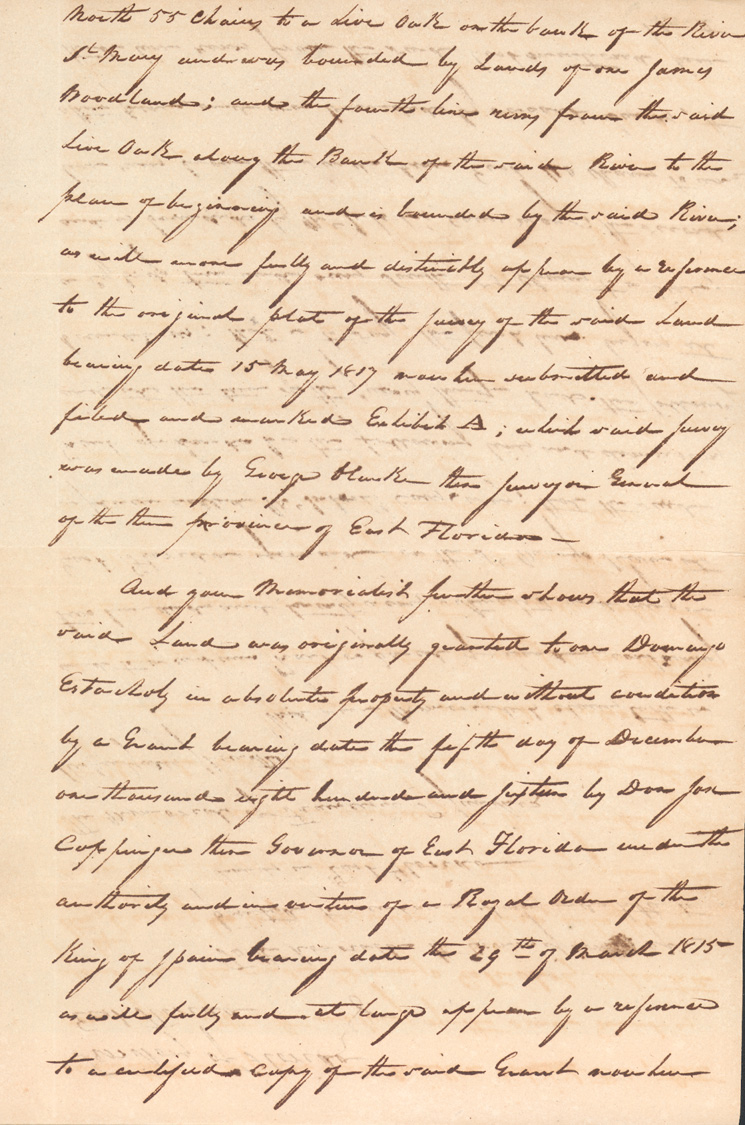 North 55 Chains to a Live Oak on the bank of the River
St Mary and was bounded by Lands of one James
Woodland; and the fourth line runs from the said
Live Oak along the Bank of the said River to the
place of beginning and is bounded by the said River;
as will more fully and distinctly appear by a reference
to the original plat of the survey of the said Land
bearing date 15 May 1817 now here submitted and
filed and marked Exhibit A; which said survey
was made by George Clarke then Surveyor General
of the then province of East Florida —
And your Memorialist further shows that the
said Land was originally granted to one Domingo
in absolute property and without condition
by a Grant bearing date the fifth day of December
one thousand eight hundred and sixteen by Don Jose
Coppinger then Governor of East Florida under the
authority and in virtue of a Royal Order of the
King of Spain bearing date the 29th of March 1815
as will fully and at large appear by a reference
to a certified copy of the said Grant now here